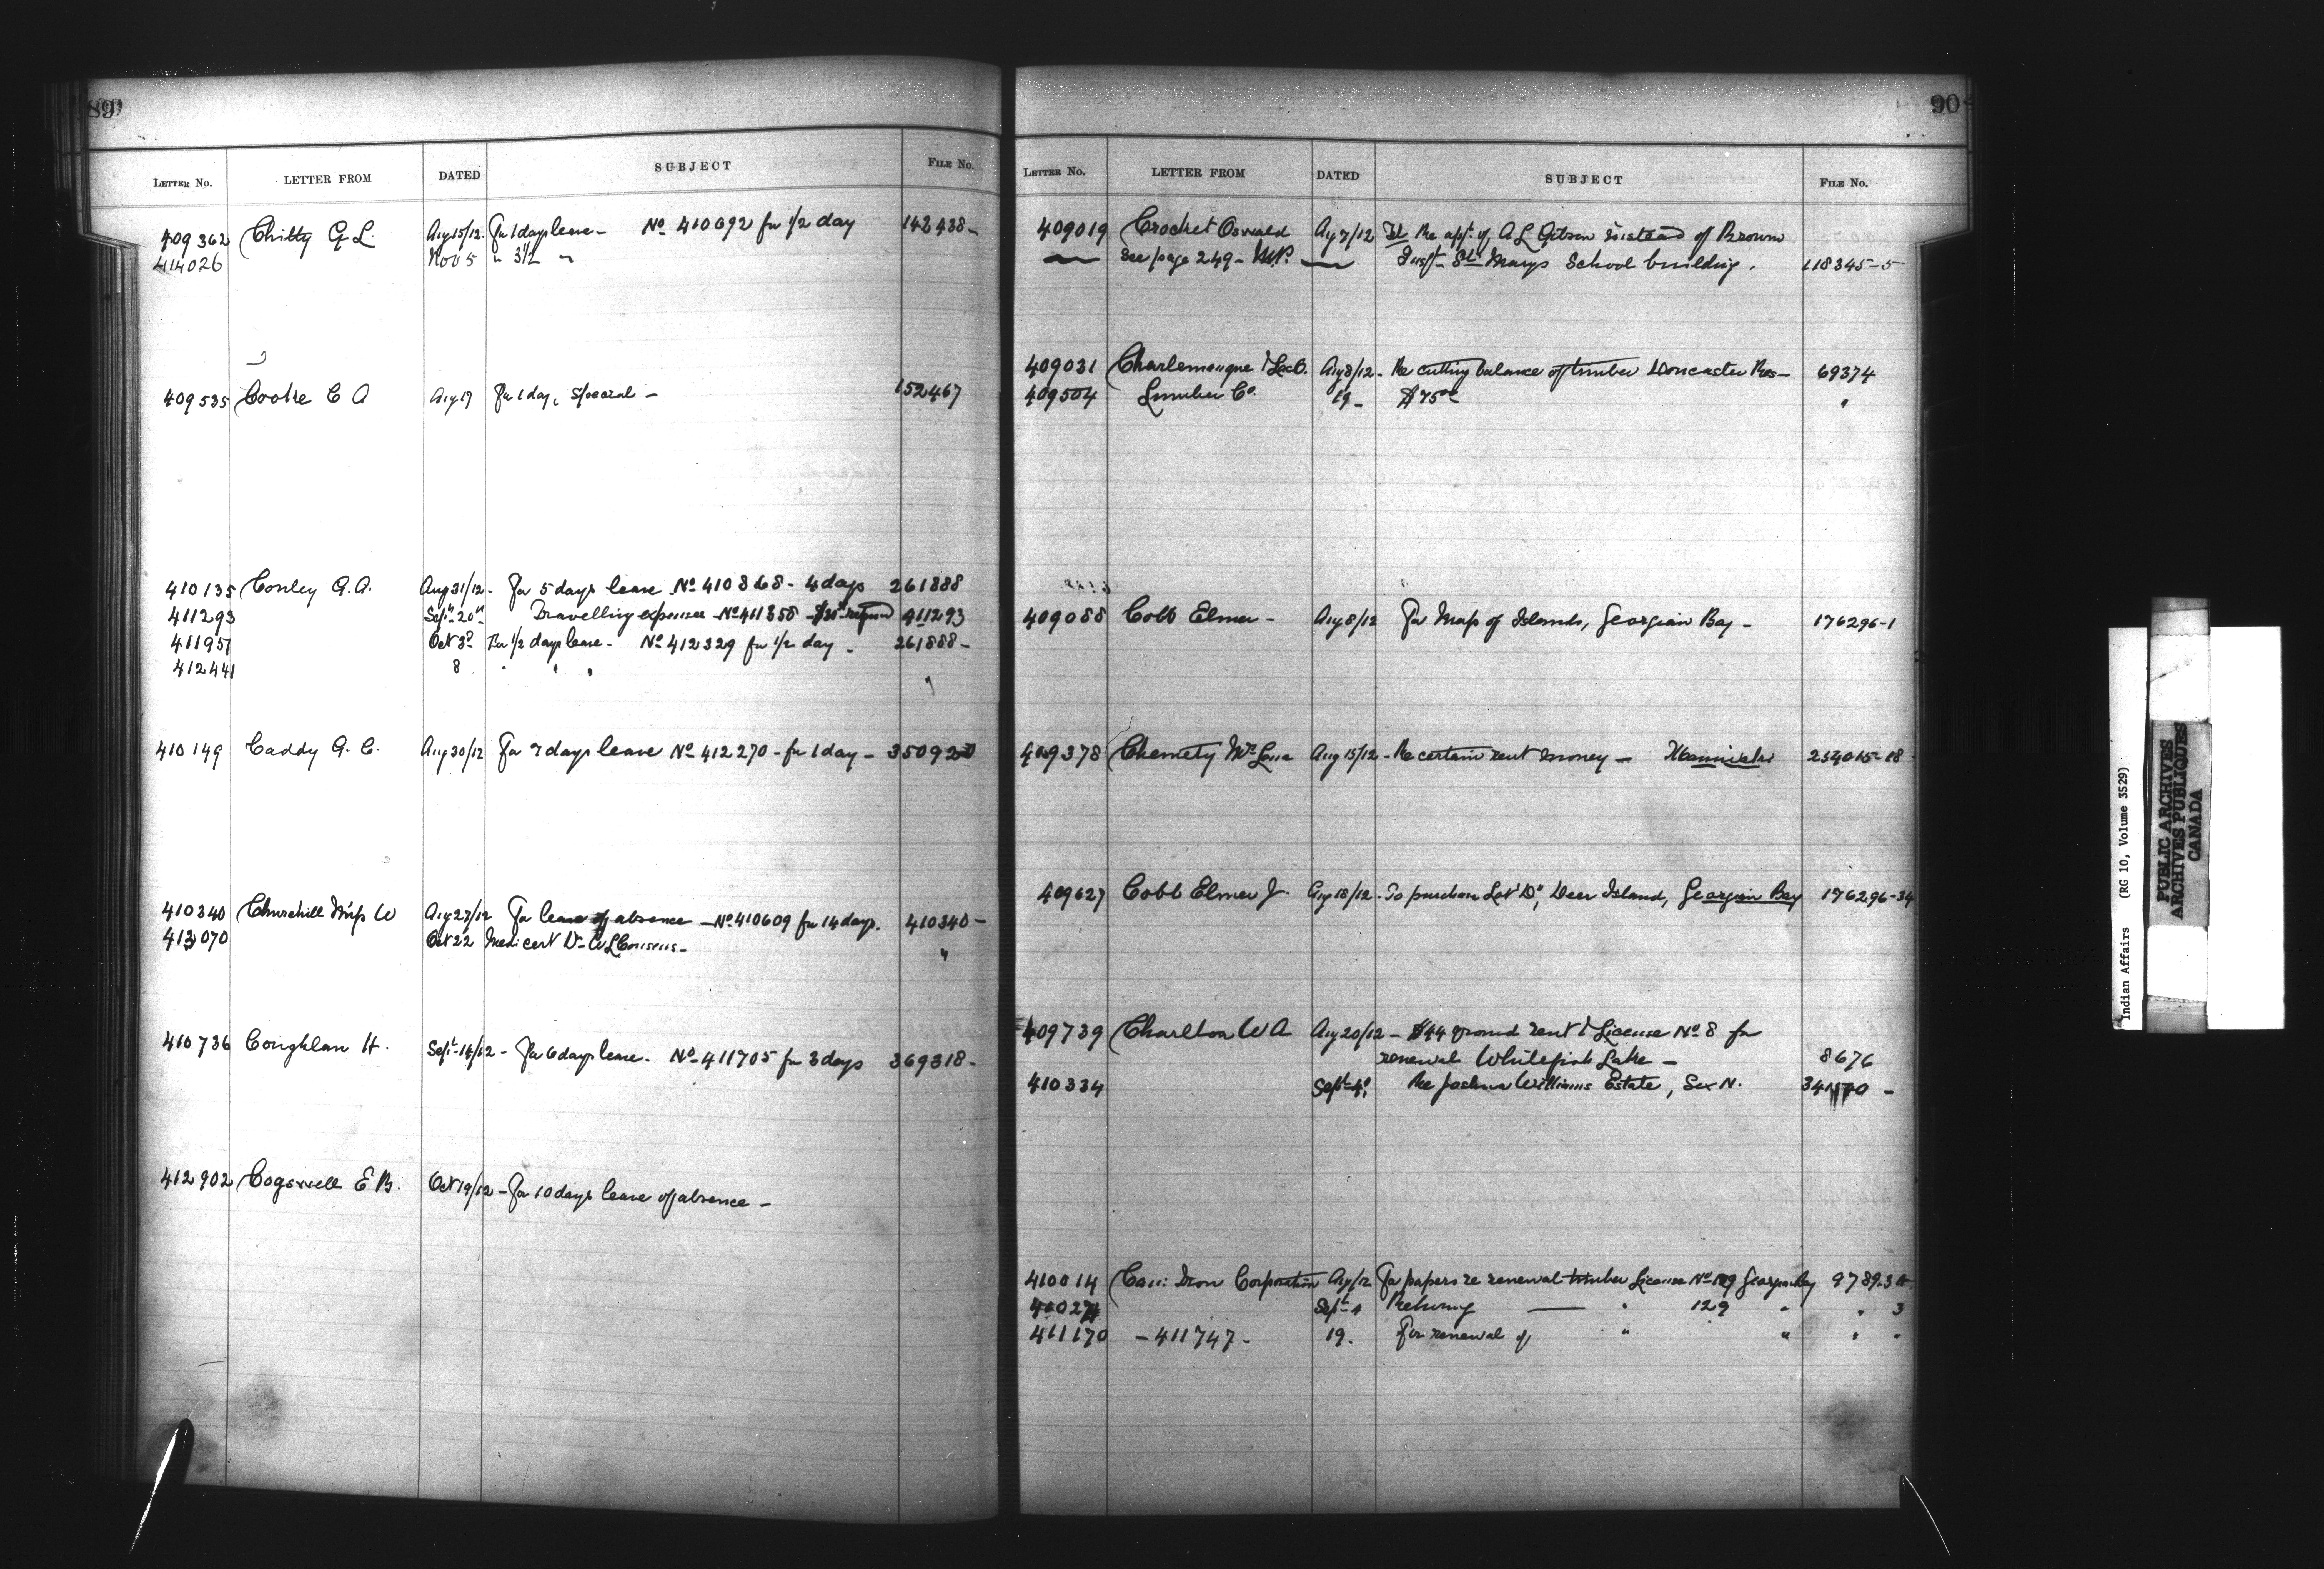 89
LETTER No. LETTER FROM DATED SUBJECT FILE No.
409362 Chitty G L. Aug 15/12. For 1 days leave - No 410692 for 1/2 day 142438-
414026 Nov 5 " 3 1/2 "
409535 Cooke C A Aug 19 For 1 day, special - 152467
410135 Conley A. A. Aug 31/12 - For 5 days leave No 410868 - 4 days 261888
411293 Sept 20th Travelling expenses No 411358 411293
411951 Oct 3d For 1/2 days leave - No 412329 for 1/2 day - 261888-
412441 8 " " " "
410149 Caddy A. C. Aug 30/12 For 7 days leave No 412270 - for 1 day - 350920
410340 Churchill Miss W Aug 27/12 For leave of absence - No 410609 for 14 days. 410340-
413070 Oct 22 Medi cert Dr W L Cousens - "
410736 Coughlan H. Sept 14/12 - For 6 days leave - No 411705 for 3 days 369318-
412902 Cogswell E B. Oct 19/12 - For 10 days leave of absence -
90
LETTER No. LETTER FROM DATED SUBJECT FILE No.
409019 Crocket Oswald Aug 7/12 Tel Re appt. of A L instead of Brown
— See page 249 - M.P. — Inspt - St Marys School building. 118345-5
409031 Charlemagne & Lac O. Aug 8/12 - Re cutting balance of timber Doncaster Res - 69374
409504 Lumber Co. 19 - $75 "
409088 Cobb Elmer - Aug 8/12 For Map of Islands, Georgian Bay - 176296-1
409378 Mrs Aug 15/12 - Re certain rent money - 254015-18
409627 Cobb Elmer J. Aug 18/12 - To purchase Lot "D", Deer Island, Georgian Bay 176296-34
409739 Charlton W A Aug 20/12 - $44 ground rent & License No 8 for
renewal Whitefish Lake - 8676
410334 Sept 4. Re Joshua Williams Estate, Six N. 34170 -
410014 Can: Iron Corporation Aug /12 For papers re renewal timber License No 129 Georgian Bay 9789-3
41027 Sept 4 Returning — " 129 " " 3
411170 - 411747 - 19. For renewal of " " " "
Indian Affairs (RG 10, Volume 3529)
PUBLIC ARCHIVES
ARCHIVES PUBLIQUES
CANADA